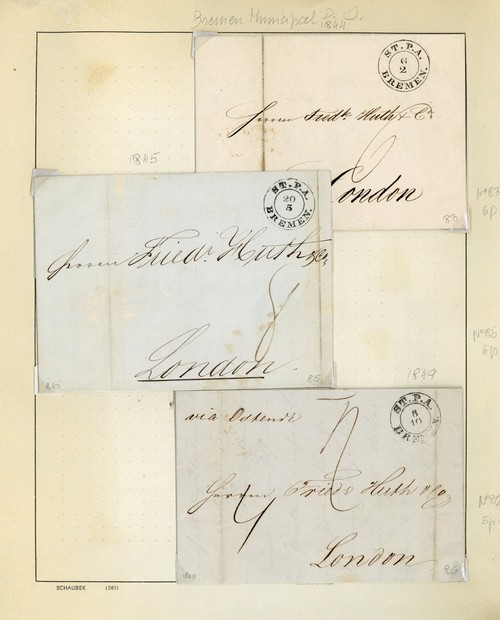 Bremen Municipal P. O.
1844
ST. P. A.
6
2
BREMEN.
Herrn Fredk Huth & Co
London
83
No 83
6p
1845
ST. P. A.
20
5
BREMEN.
Herrn Friedr. Huth & Co
London.
85
6p
1849
ST. P. A.
8
10
BREMEN
via Ostende
Herrn Friedr Huth & Co
London
86
No 86
5p
SCHAUBEK (261)